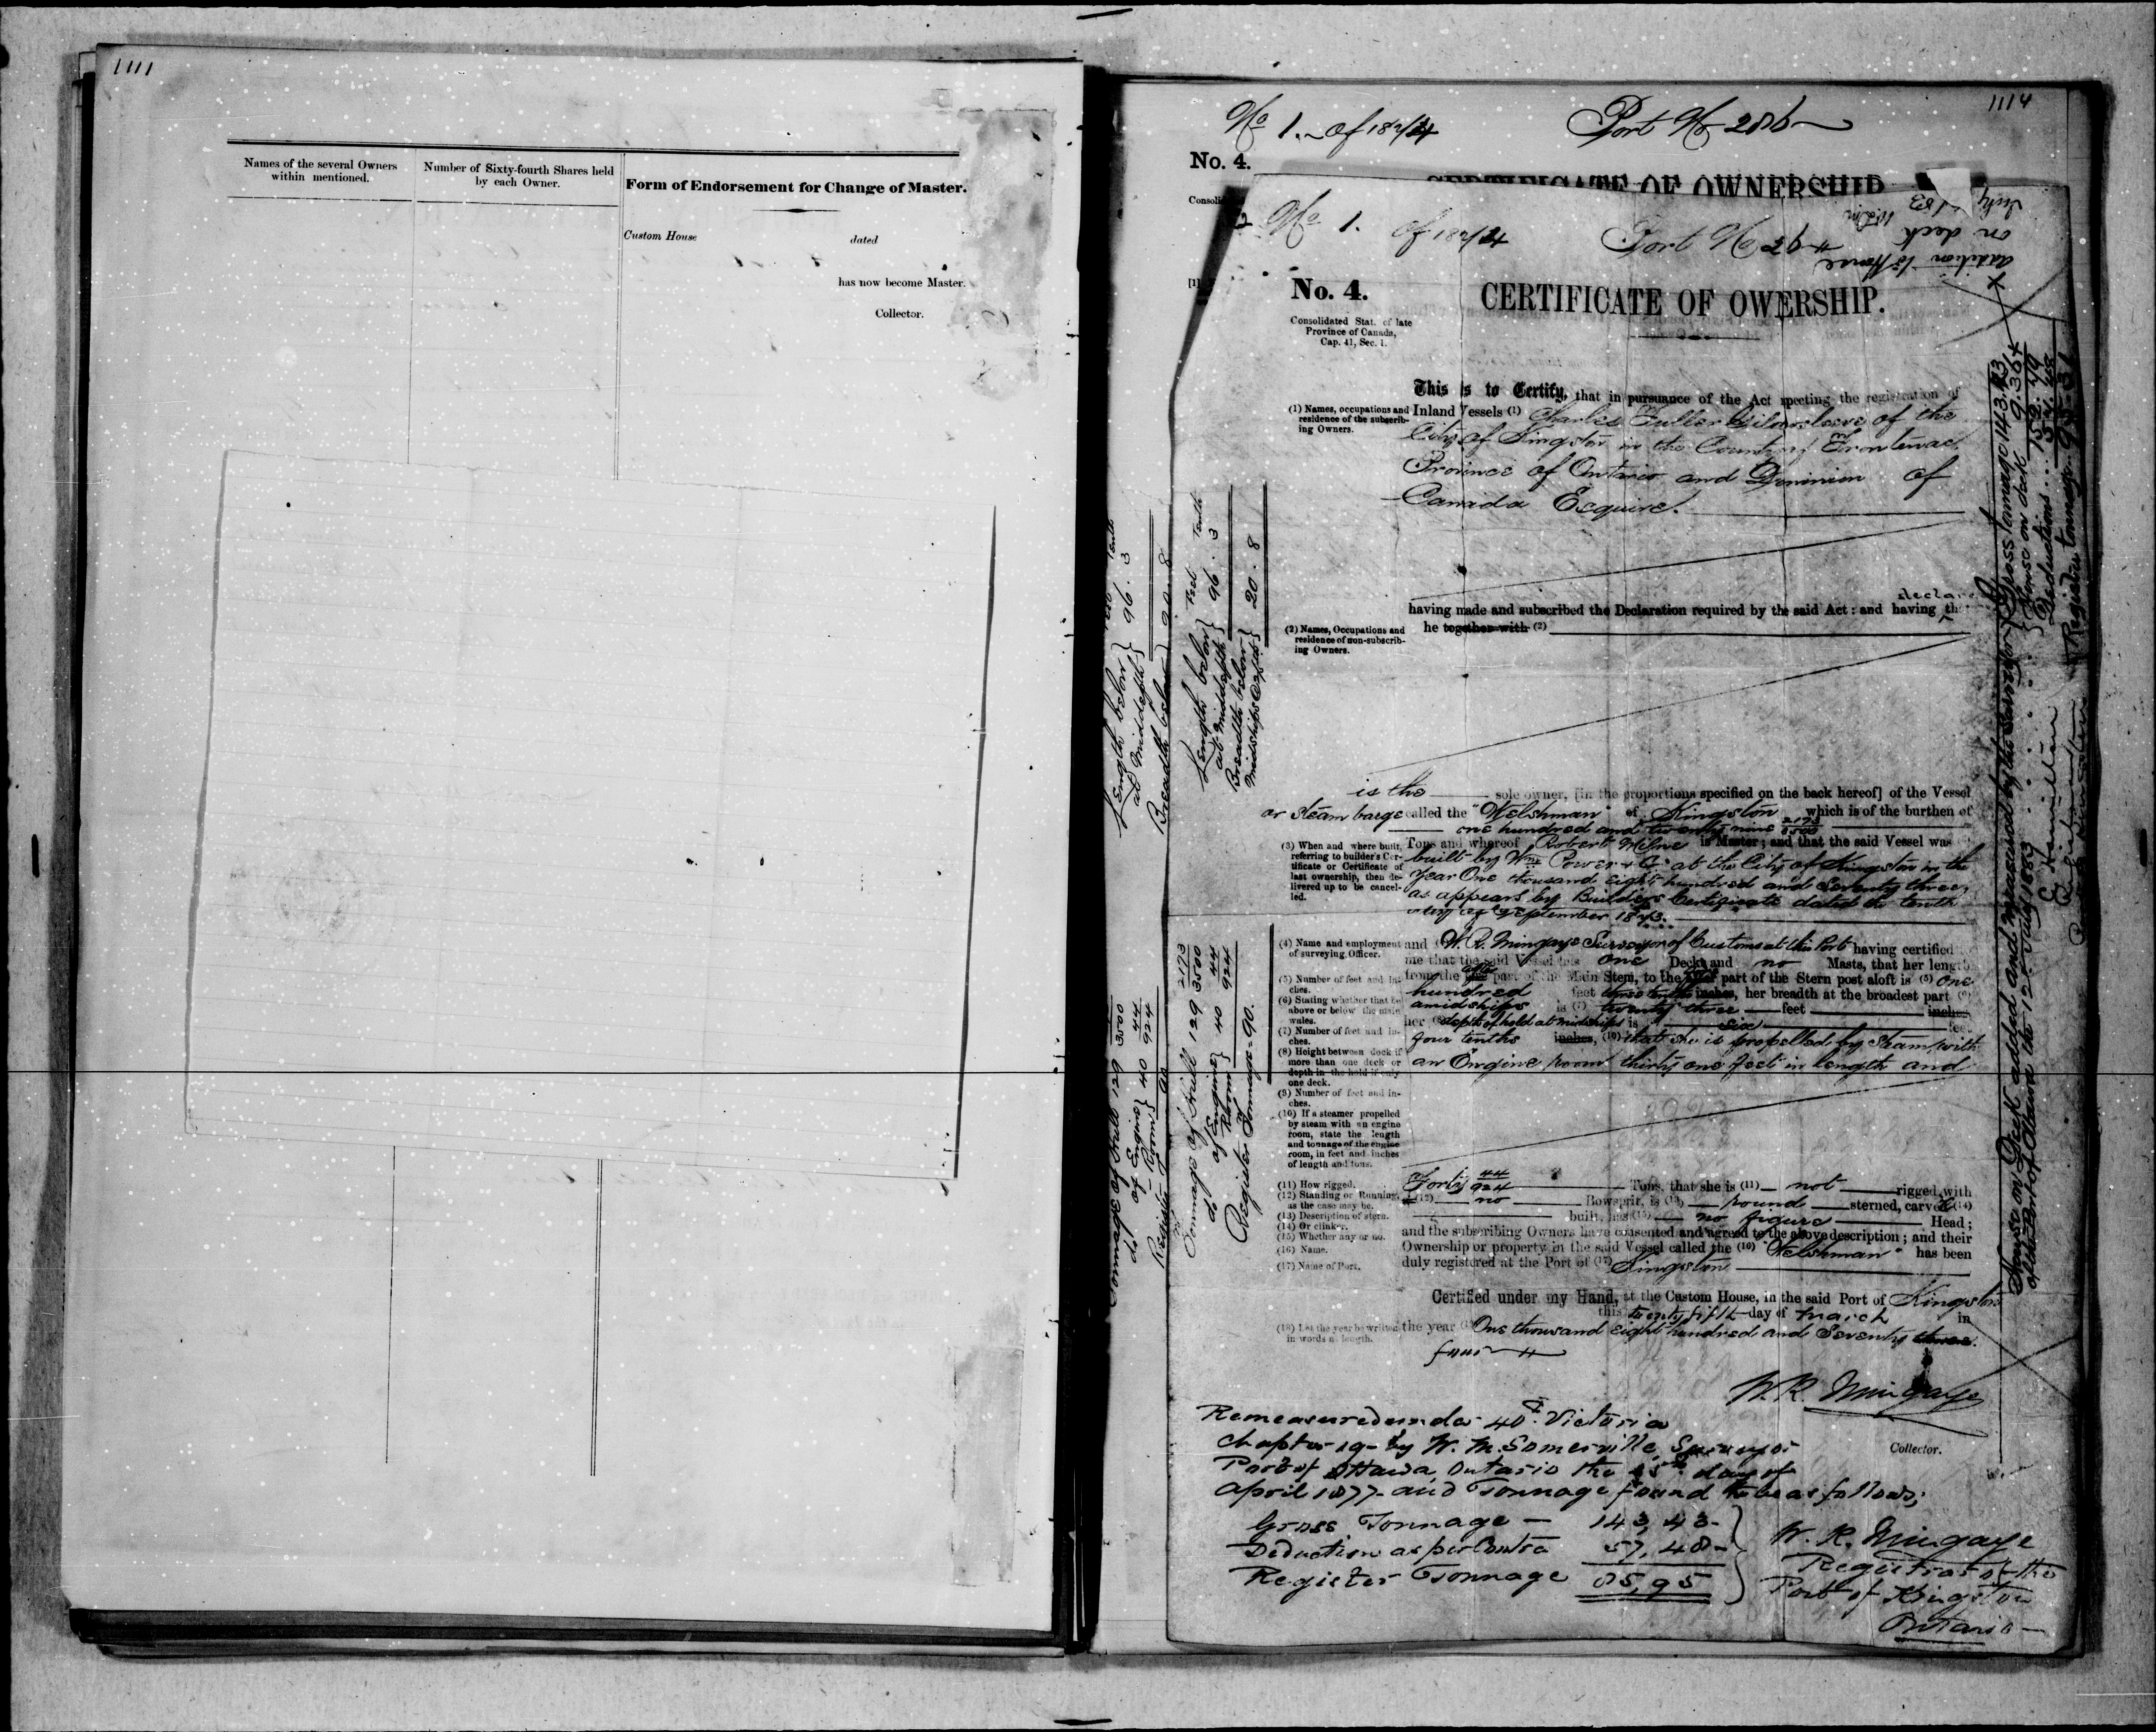 1111
Names of the several Owners
within mentioned.
Number of Sixty-fourth Shares held
by each Owner.
Form of Endorsement for Change of Master.
Custom House
dated
has now become Master.
Collector.
1114
No 1. of 18
Port No
No. 4.
CERTIFICATE OF OWNERSHIP
No 1. of 18
Port No
No. 4.
CERTIFICATE OF OWERSHIP.
Consolidated Stat. of late
Province of Canada,
Cap. 41, Sec. 1.
This is to Certify, that in pursuance of the Act specting the registration of
(1) Names, occupations and
residence of the subscrib-
ing Owners.
Inland Vessels (1) Charles Fuller Gildersleeve of the
City of Kingston in the County of Frontenac
Province of Ontario and Dominion of
Canada Esquire.
having made and subscribed the Declaration required by the said Act: and having declare
he together with (2)
(2) Names, Occupations and
residence of non-subscrib-
ing Owners.
is the sole owner, [in the proportions specified on the back hereof] of the Vessel
or Steam barge called the "Welshman" of Kingston which is of the burthen of
one hundred and twenty nine 2173/3500
Tons and whereof Robert Milne is Master; and that the said Vessel was (3)
(3) When and where built,
referring to builder's Cer-
tificate or Certificate of
last ownership, then de-
livered up to be cancel-
led.
built by Wm Power & Co at the City of Kingston in the
year One thousand eight hundred and Seventy three,
as appears by Builders Certificate dated the tenth
day of September 1873.
(4) Name and employment
of surveying Officer.
and W. R. Mingaye Surveyor of Customs at this Port having certified
me that the said Vessel has one Deck and no Masts, that her length
from the part of the Main Stem, to the part of the Stern post aloft is (5) One
(5) Number of feet and in-
ches.
hundred feet three tenths inches, her breadth at the broadest part (6)
(6) Stating whether that be
above or below the main
wales.
amidships is (7) twenty three feet inches
(7) Number of feet and in-
ches.
her (8) depth of hold at midships is six feet
four tenths inches, (10) that she is propelled by Steam, with
(8) Height between deck if
more than one deck or
depth in the hold if only
one deck.
an Engine room thirty one feet in length and
(9) Number of feet and in-
ches.
(10) If a steamer propelled
by steam with an engine
room, state the length
and tonnage of the engine
room, in feet and inches
of length and tons.
(11) How rigged.
(12) Standing or Running,
as the case may be.
(13) Description of stern.
(14) Or clinker.
(15) Whether any or no.
(16) Name.
(17) Name of Port.
Forty 44/924 Tons, that she is (11) not rigged with
(12) no Bowsprit, is (13) round sterned, carvel (14)
built, has (15) no figure Head;
and the subscribing Owners have consented and agreed to the above description; and their
Ownership or property in the said Vessel called the (16) "Welshman" has been
duly registered at the Port of (17) Kingston
Certified under my Hand, at the Custom House, in the said Port of Kingston
this twenty fifth day of March in
(18) Let the year be written
in words at length.
the year One thousand eight hundred and Seventy three.
four
W. R. Mingaye
Collector.
Remeasured under 40th Victoria
Chapter 19 by W. M. Somerville, Surveyor
Port of Ottawa, Ontario the day of
April 1877 and Tonnage found to be as follows;
Gross Tonnage — 143,43
Deduction as per Contra 57,48
Register Tonnage 85,95
W. R. Mingaye
Registrar of the
Port of Kingston
Ontario
Length below
at Middepth
Feet Tenth
96 . 3
Breadth below
Length below
at Middepth
Feet Tenth
96 . 3
Breadth below
Midships
20 . 8
Tonnage of Hull 129 3500
do of Engine Room 40 44/924
Register 90
Tonnage of Hull 129 2173/3500
do of Engine Room 40 44/924
Register Tonnage = 90.
addition to House
on deck
House on Deck added and measured by the Surveyor
of the Port of Ottawa the 12th July 1883
Gross Tonnage 143.43
House on deck 9.36
152.79
Deductions 57.48
Register tonnage 95.31